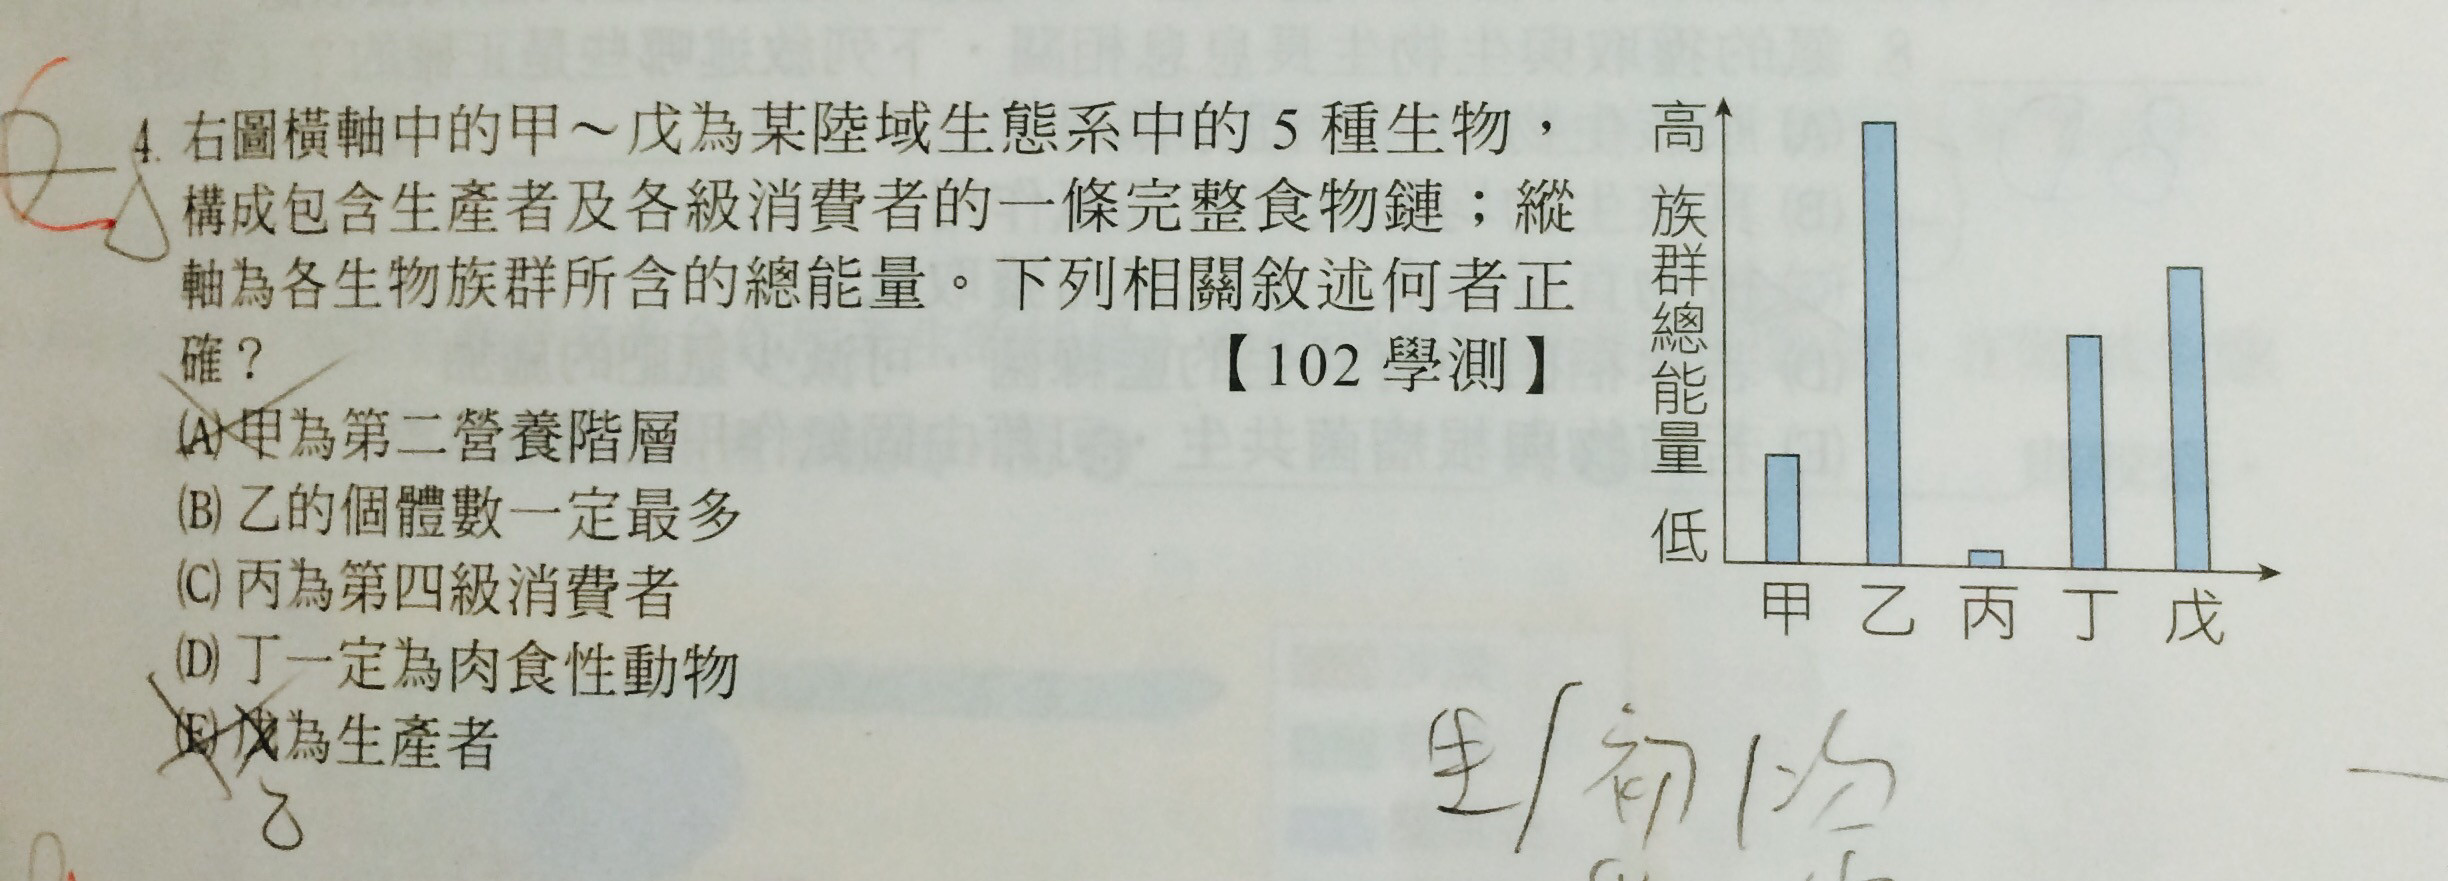 4. 右圖橫軸中的甲～戊為某陸域生態系中的 5 種生物，
構成包含生產者及各級消費者的一條完整食物鏈；縱
軸為各生物族群所含的總能量。下列相關敘述何者正
確？
【102 學測】
(A) 甲為第二營養階層
(B) 乙的個體數一定最多
(C) 丙為第四級消費者
(D) 丁一定為肉食性動物
(E) 戊為生產者
乙
高
族
群
總
能
量
低
甲 乙 丙 丁 戊
生/初